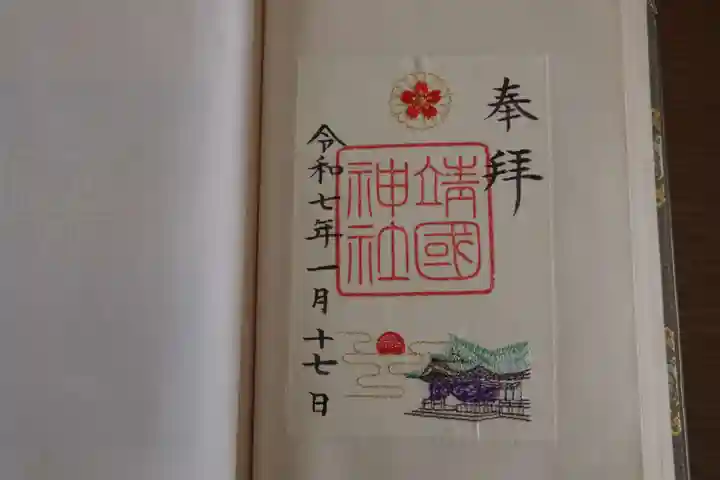 奉拝
靖國
神社
令和七年一月十七日